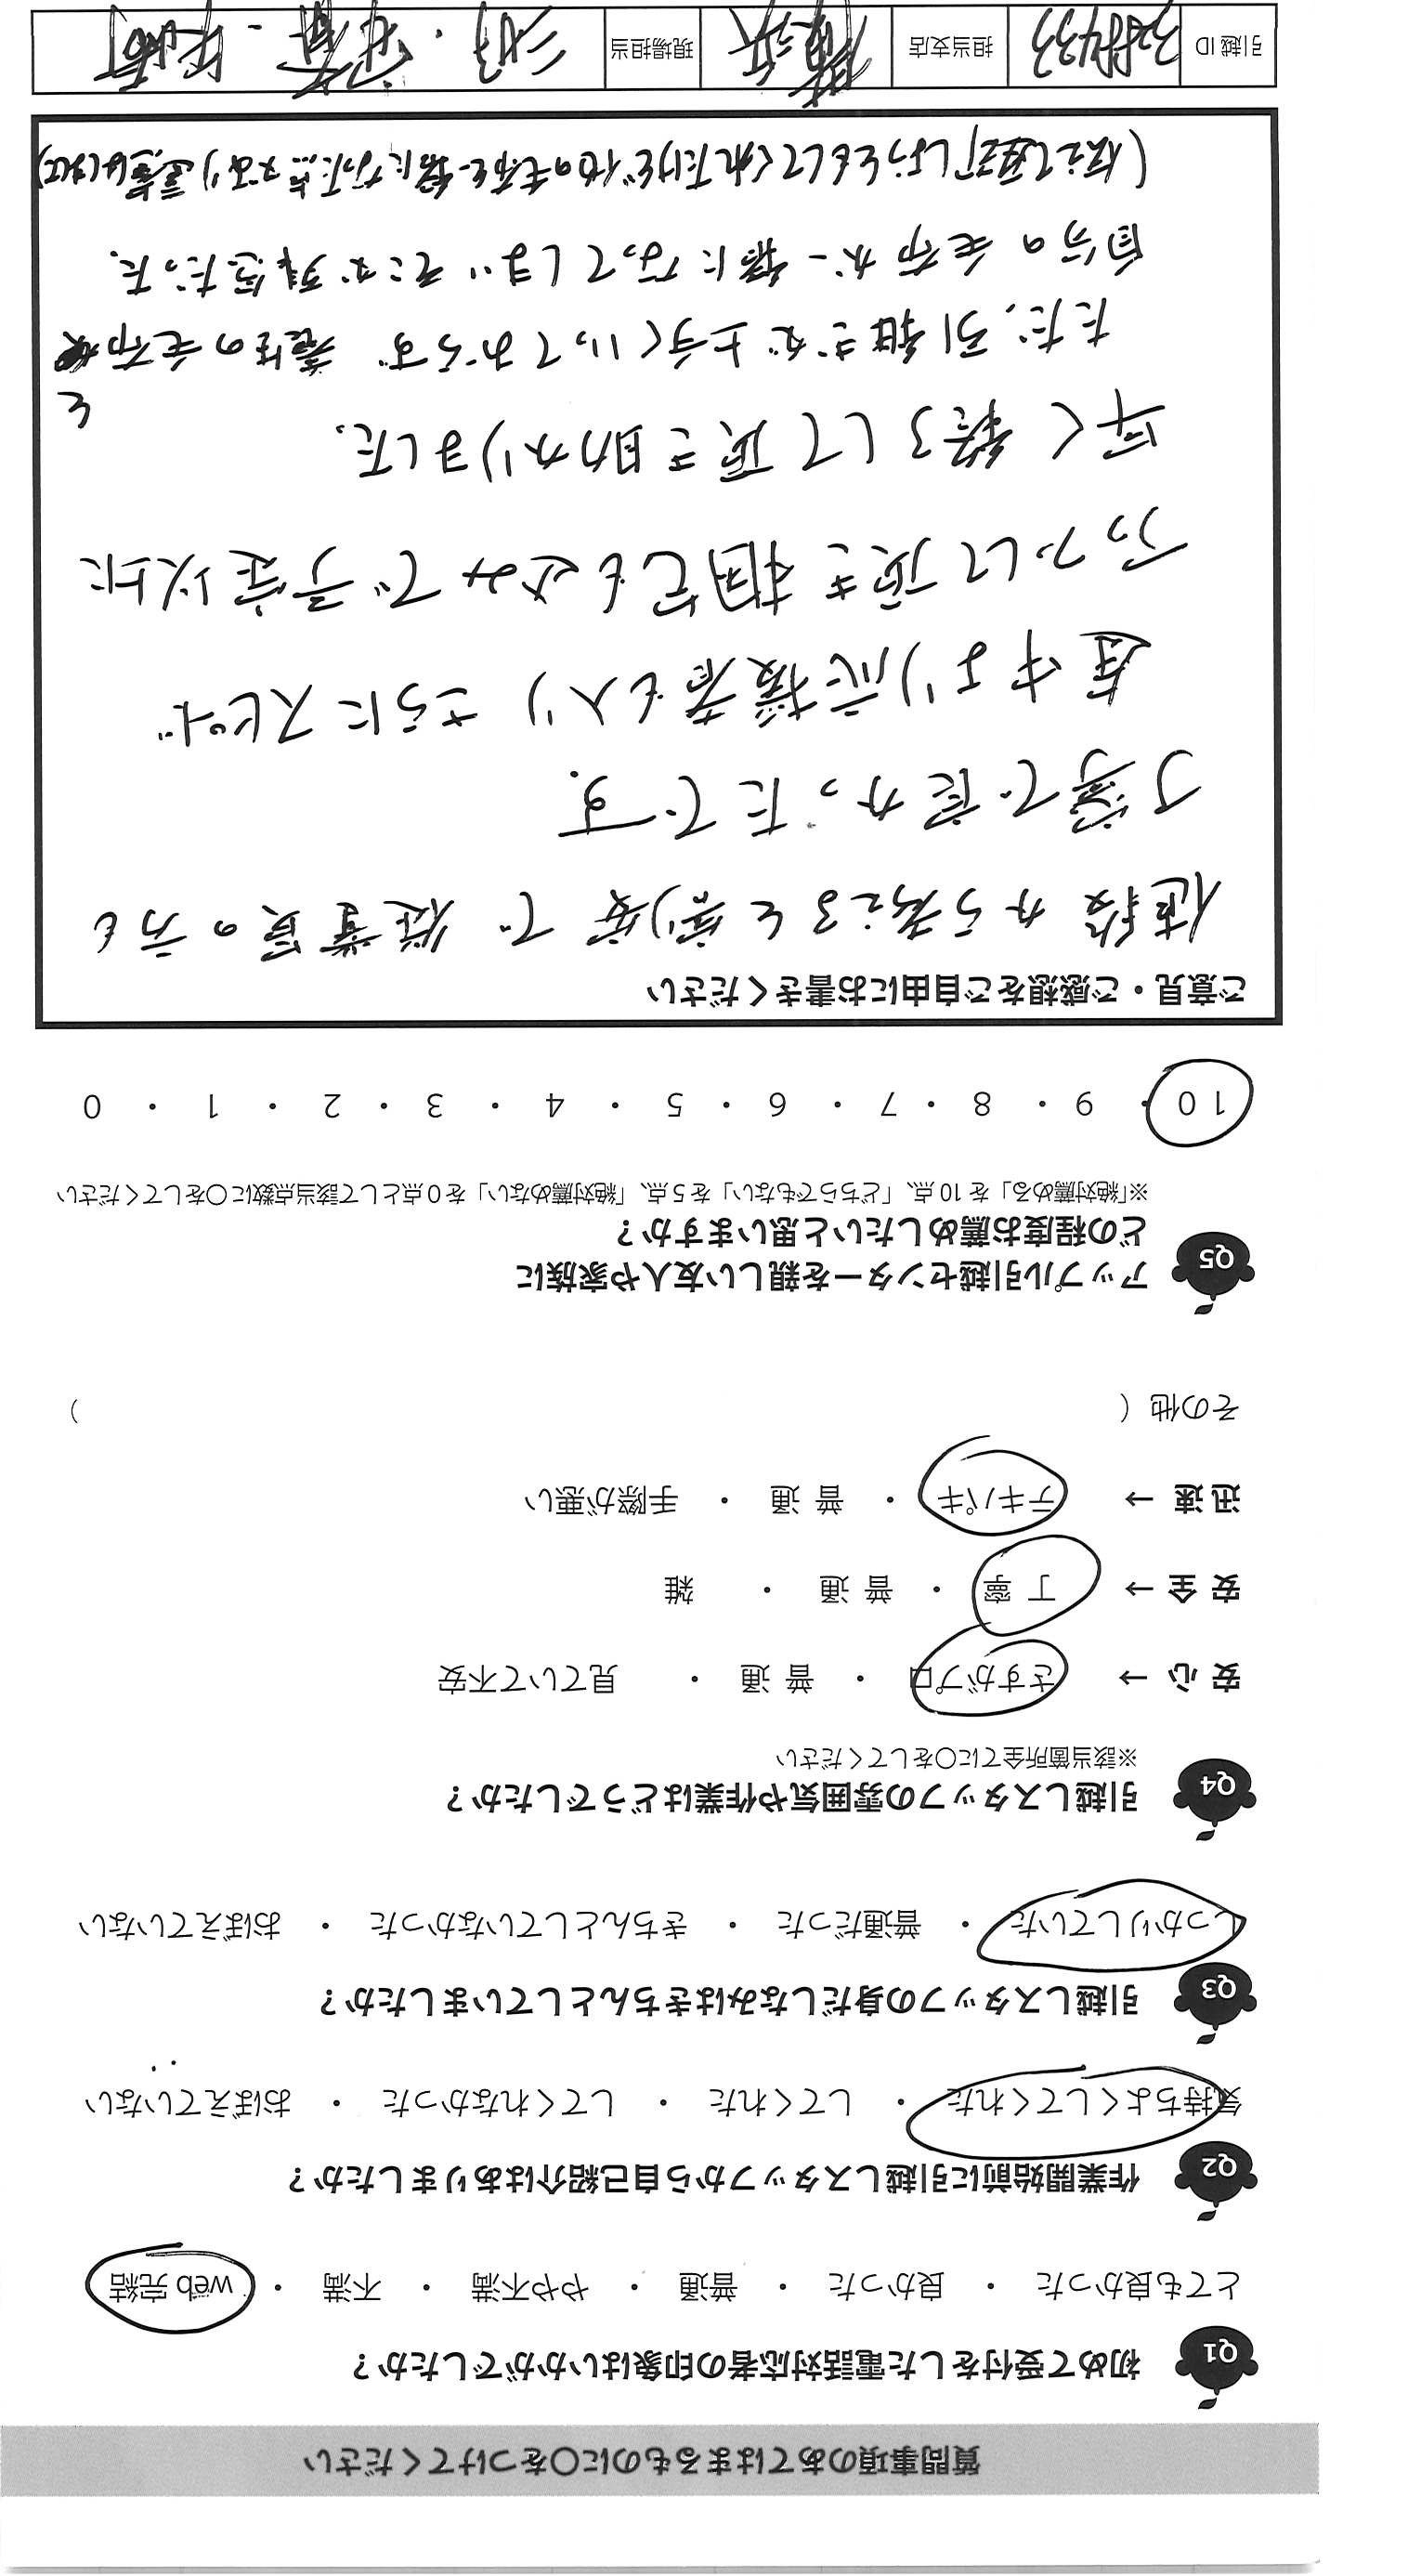 質問事項のあてはまるものに〇をつけてください
Q1 初めて受付をした電話対応者の印象はいかがでしたか？
とても良かった ・ 良かった ・ 普通 ・ やや不満 ・ 不満 ・ web 完結
Q2 作業開始前に引越しスタッフから自己紹介はありましたか？
気持ちよくしてくれた ・ してくれた ・ してくれなかった ・ おぼえていない
Q3 引越しスタッフの身だしなみはきちんとしていましたか？
しっかりしていた ・ 普通だった ・ きちんとしていなかった ・ おぼえていない
Q4 引越しスタッフの雰囲気や作業はどうでしたか？
※該当箇所全てに〇をしてください
安 心 → さすがプロ ・ 普 通 ・ 見ていて不安
安 全 → 丁 寧 ・ 普 通 ・ 雑
迅 速 → テキパキ ・ 普 通 ・ 手際が悪い
その他（ ）
Q5 アップル引越センターを親しい友人や家族に
どの程度お薦めしたいと思いますか？
※「絶対薦める」を 10 点、「どちらでもない」を 5 点、「絶対薦めない」を 0 点として該当点数に〇をしてください
1 0 ・ 9 ・ 8 ・ 7 ・ 6 ・ 5 ・ 4 ・ 3 ・ 2 ・ 1 ・ 0
ご意見・ご感想をご自由にお書きください
値段から考えると割安で従業員の方も
丁寧で良かったです。
途中より応援者も入りさらにスピード
アップして頂き 梱包も込みで予定以上に
早く終了して頂き助かりました。
ただ、引継ぎが上手くいっておらず 養生の毛布と
自分の毛布が一緒になってしまいそこが残念だった。
引越 ID 担当支店 現場担当